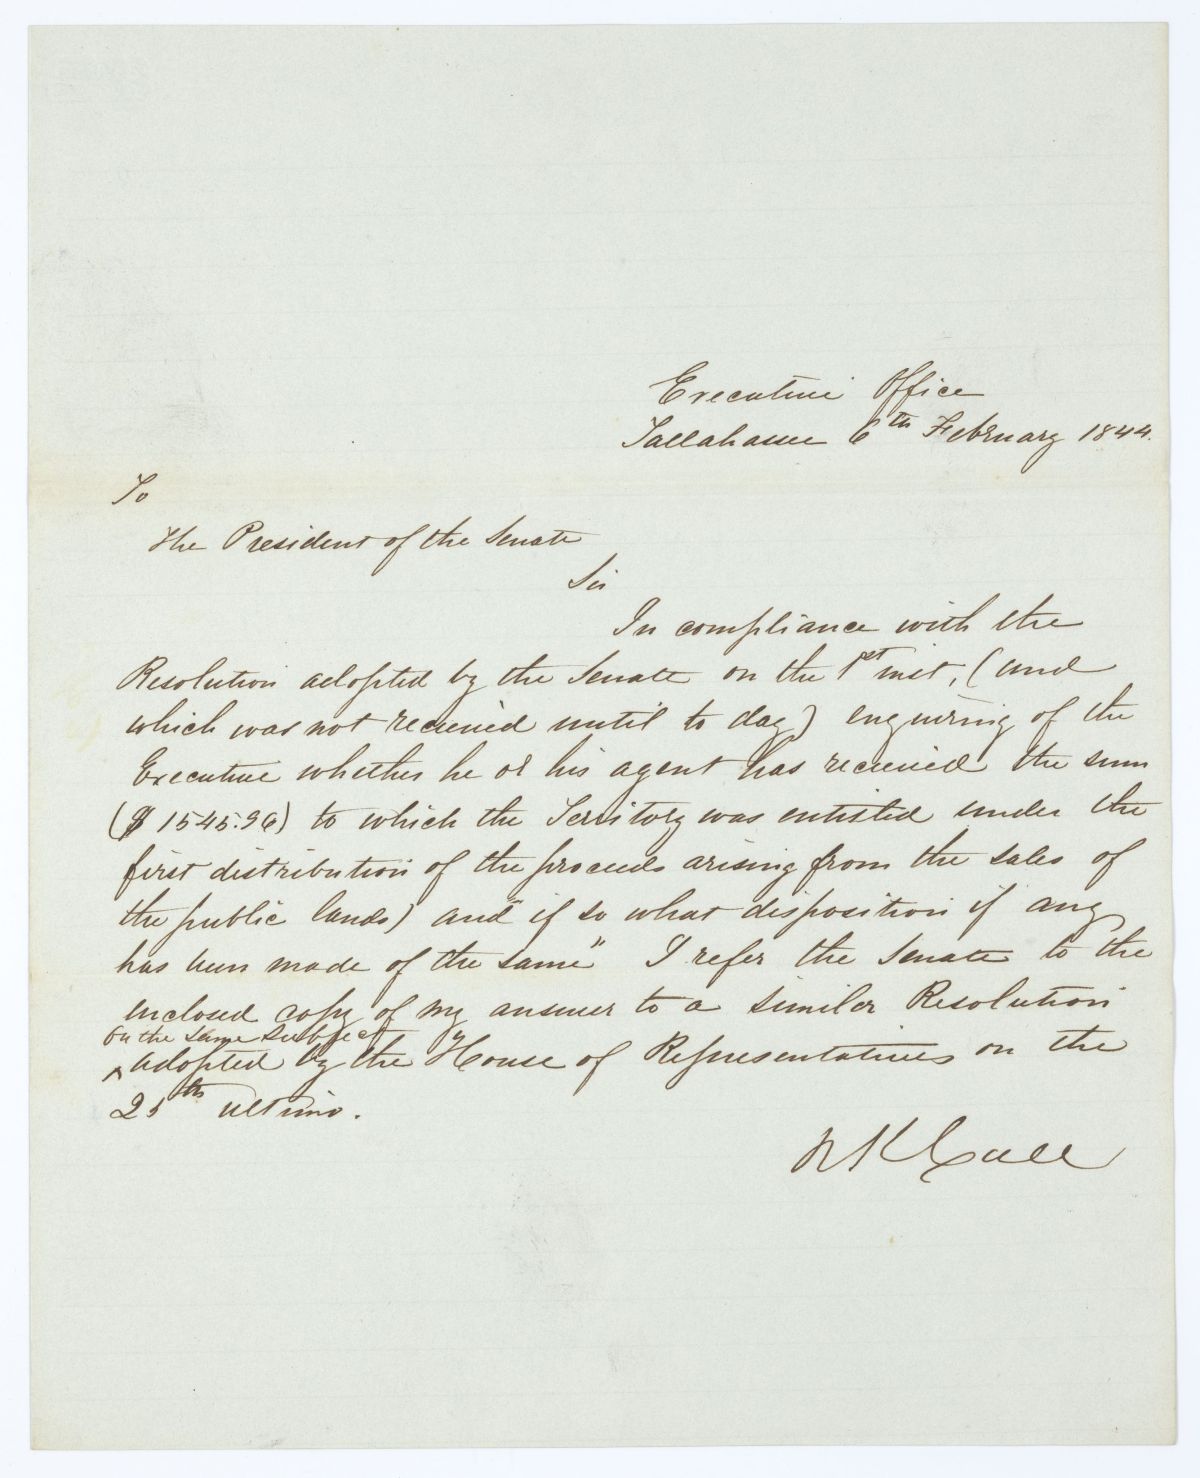 Executive Office
Tallahassee 6th February 1844.
To
The President of the Senate
Sir
In compliance with the
Resolution adopted by the Senate on the 1st inst, (and
which was not received until to day) enquiring of the
Executive whether he or his agent has received the sum
($1545.96) to which the Territory was entitled under the
first distribution of the proceeds arising from the sales of
the public lands) and "if so what disposition if any
has been made of the same" I refer the Senate to the
enclosed copy of my answer to a similar Resolution
on the same subject
^ adopted by the House of Representatives on the
25th ultimo.
R K Call